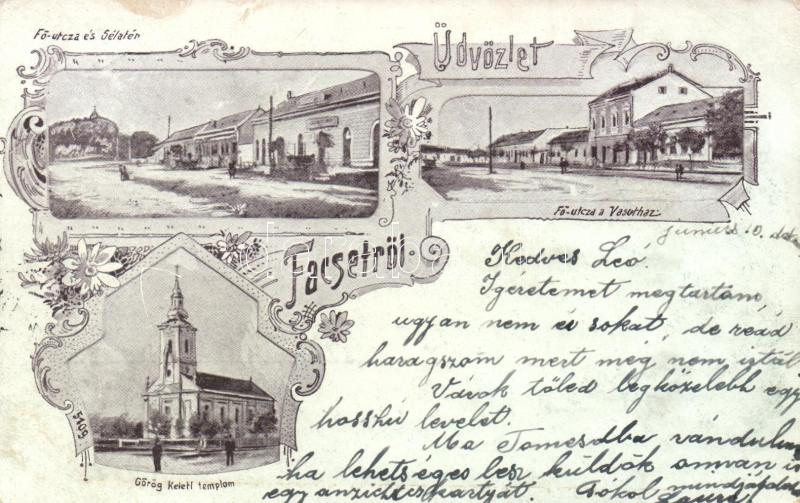 Fő-utcza és Sétatér
Üdvözlet
Fő-utcza a Vasutház
Facsetről.
Görög Keleti templom
5109
Június 10.
Kedves Leó.
Igéretemet megtartani,
ugyan nem ér sokat, de reád
haragszom mert még nem irtál
Várok tőled legközelebb egy
hosshú levelet.
Ma Tomesdba vándulunk
ha lehetséges lesz küldök onnan is
egy anzichtskártyát. Csókol mindjájatokat